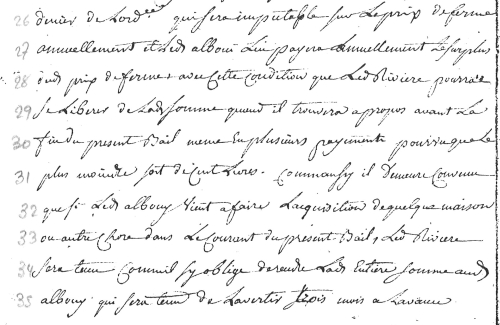 26 denier de Lord.ce qui sera imputable sur Le prix de ferme
27 annuellement et Led albouy Luy payera annuellement Le surplus
28 dud prix de ferme avec Cette Condition que Led Riviere pourra
29 se Liberer de Lad somme quand il trouvera apropos avant La
30 fin du present Bail meme En plusieurs payements pourvu que Le
31 plus moindre soit de Cent Livres. Comme aussy il Demeure Convenu
32 que si Led albouy Vient a faire Lacquisition de quelque maison
33 ou autre Chose dans Le Courant du present Bail, Led Riviere
34 sera tenu Comme il sy oblige de rendre Lad Entiere somme aud
35 albouy qui sera tenu de Lavertir mois a Lavance